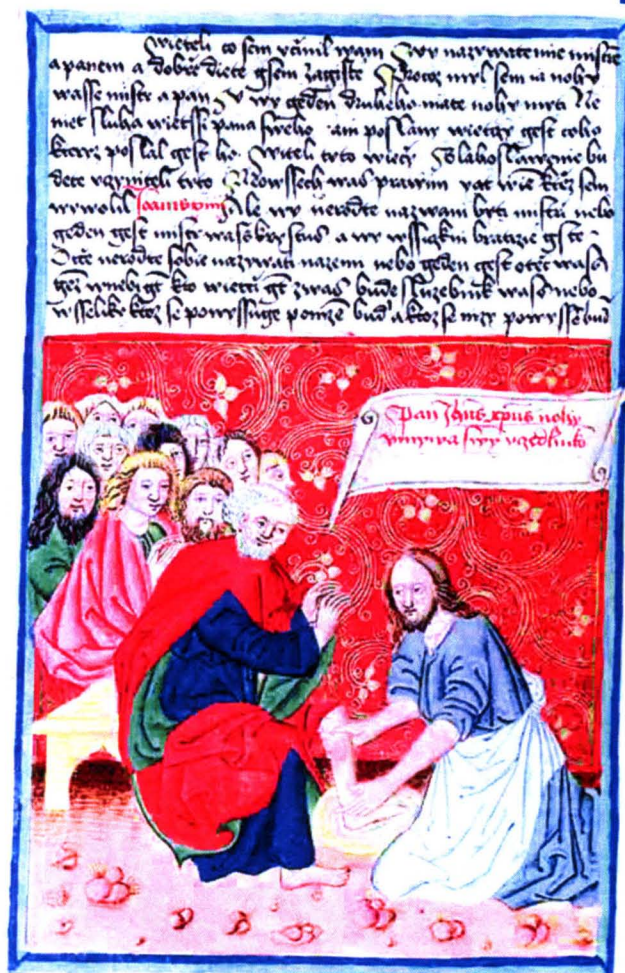 wieteli co sem včinil wam Wy nazywate mie mistře
a panem a dobře diete gsem zagiste Protoz myl sem ia nohy
wasse mistr a pan y wy geden druheho mate nohy myti Ne
niet sluha wietssi pana sweho ani poslany wietczy gest toho
kteryz poslal gest ho Witeli tyto wieci Blahoslawenie bu
dete vczyniteli tyto Ne o wssech was prawim yat wie kterez sem
wywolil Ale wy nerodte nazwani byti mistri nebo
geden gest mistr was a wy wssickni bratrzie gste
Otcě nerodte sobie nazywati na zemi nebo geden gest otec was
genz w nebi gt kto wietci gt z was bude sluzebnik was nebo
wsseliky ktoz se powyssuge ponizen bud a ktoz se nizy powyssen bud
Pan Jhus xpus nohy
vmywa swym vczedlnikom